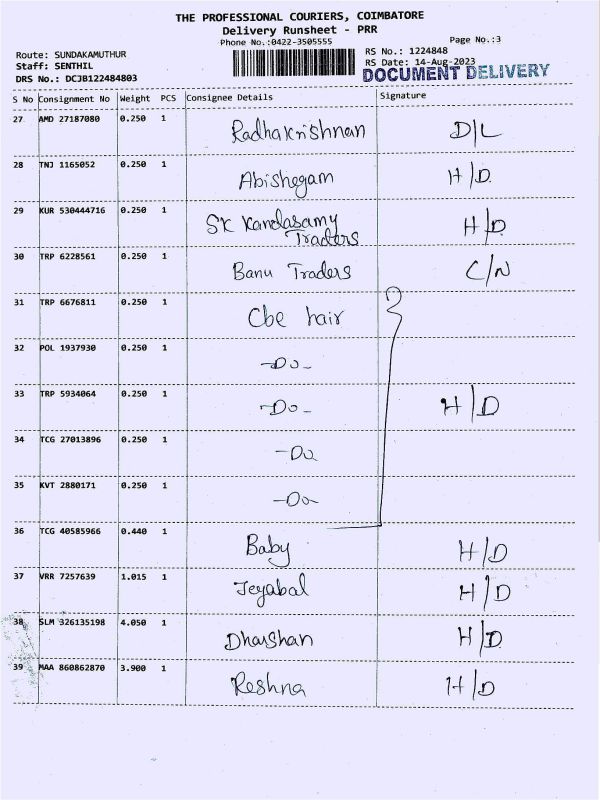 THE PROFESSIONAL COURIERS, COIMBATORE
Delivery Runsheet - PRR
Phone No.:0422-3505555
Page No.:3
Route: SUNDAKAMUTHUR
RS No.: 1224848
Staff: SENTHIL
RS Date: 14-Aug-2023
DRS No.: DCJB122484803
DOCUMENT DELIVERY
S No Consignment No Weight PCS Consignee Details Signature
27 AMD 27187080 0.250 1 Radhakrishnan D/L
28 TNJ 1165052 0.250 1 Abishegam H/D
29 KUR 530444716 0.250 1 SK Kandasamy H/D
Traders
30 TRP 6228561 0.250 1 Banu Traders C/N
31 TRP 6676811 0.250 1 Cbe hair
32 POL 1937930 0.250 1 -Do-
33 TRP 5934064 0.250 1 -Do- H/D
34 TCG 27013896 0.250 1 -Do
35 KVT 2880171 0.250 1 -Do-
36 TCG 40585966 0.440 1 Baby H/D
37 VRR 7257639 1.015 1 Jeyabal H/D
38 SLM 326135198 4.050 1 Dharshan H/D
39 MAA 860862870 3.900 1 Reshna H/D